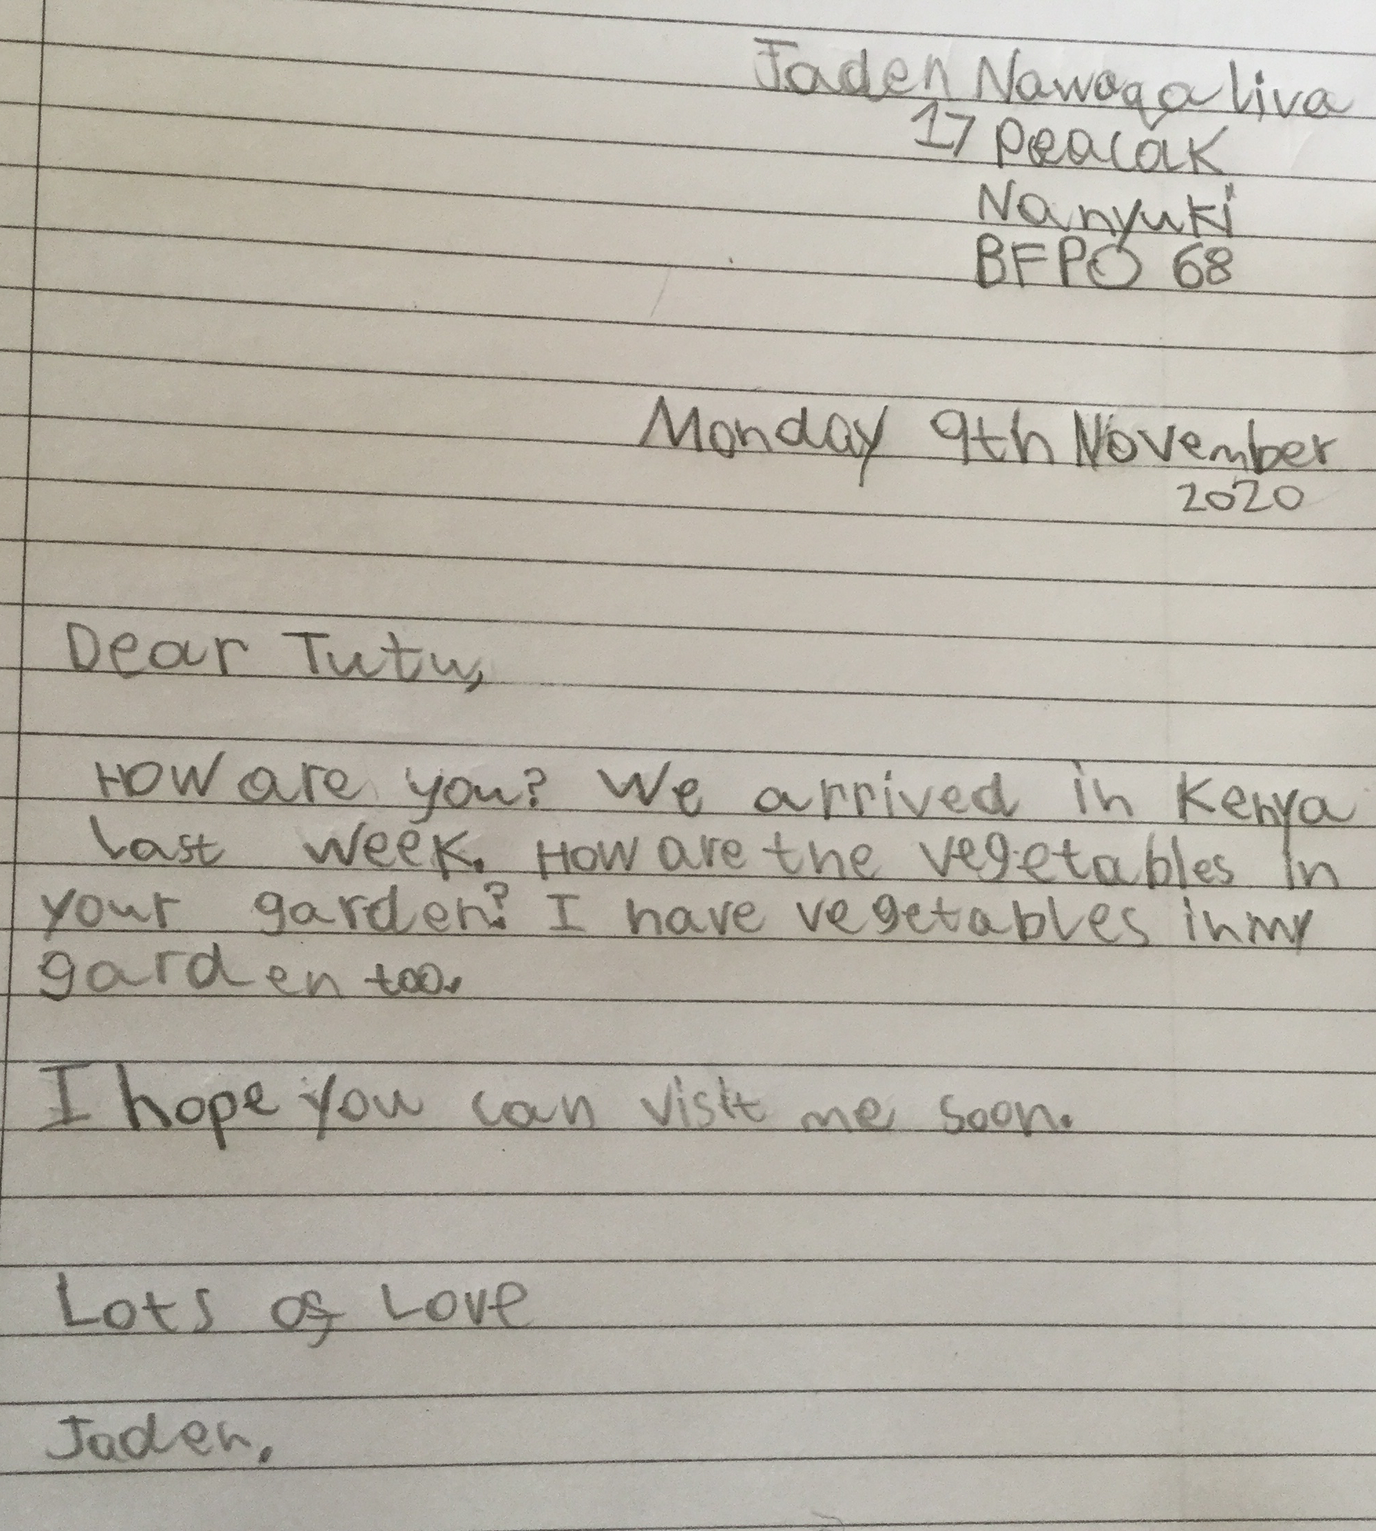 Jaden Nawaqaliva
17 Peacak
Nanyuki
BFPO 68
Monday 9th November
2020
Dear Tutu,
How are you? We arrived in Kenya
last week. How are the vegetables in
your garden? I have vegetables in my
garden too.
I hope you can visit me soon.
Lots of Love
Jaden.